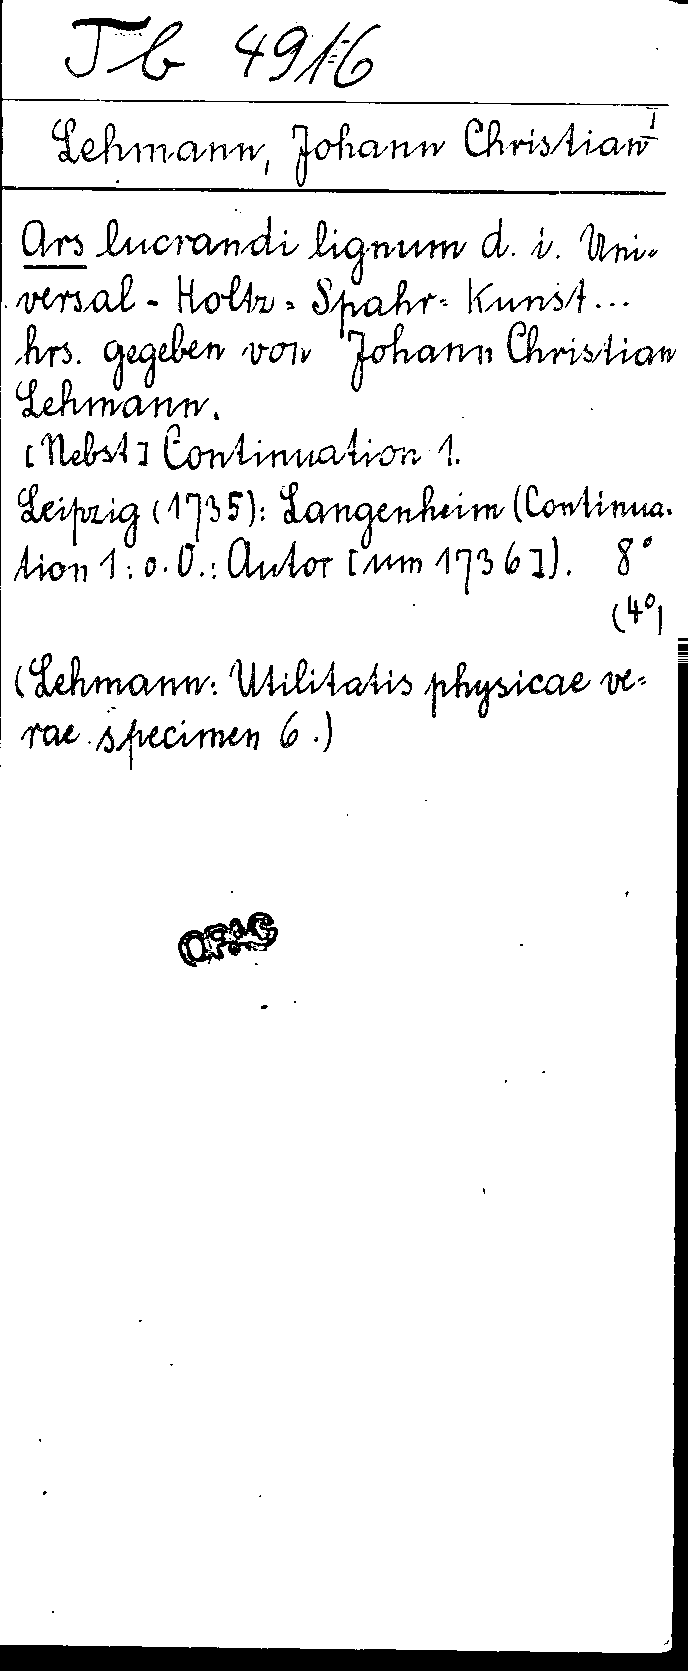 Tb 4916
Lehmann, Johann Christian I
Ars lucrandi lignum d. i. Uni-
versal-Holtz-Spahr-Kunst...
hrs. gegeben von Johann Christian
Lehmann.
[Nebst] Continuation 1.
Leipzig (1735): Langenheim (Continua-
tion 1: o. O.: Autor [um 1736]). 8°
(4°)
(Lehmann: Utilitatis physicae ve-
rae specimen 6.)
OPAC